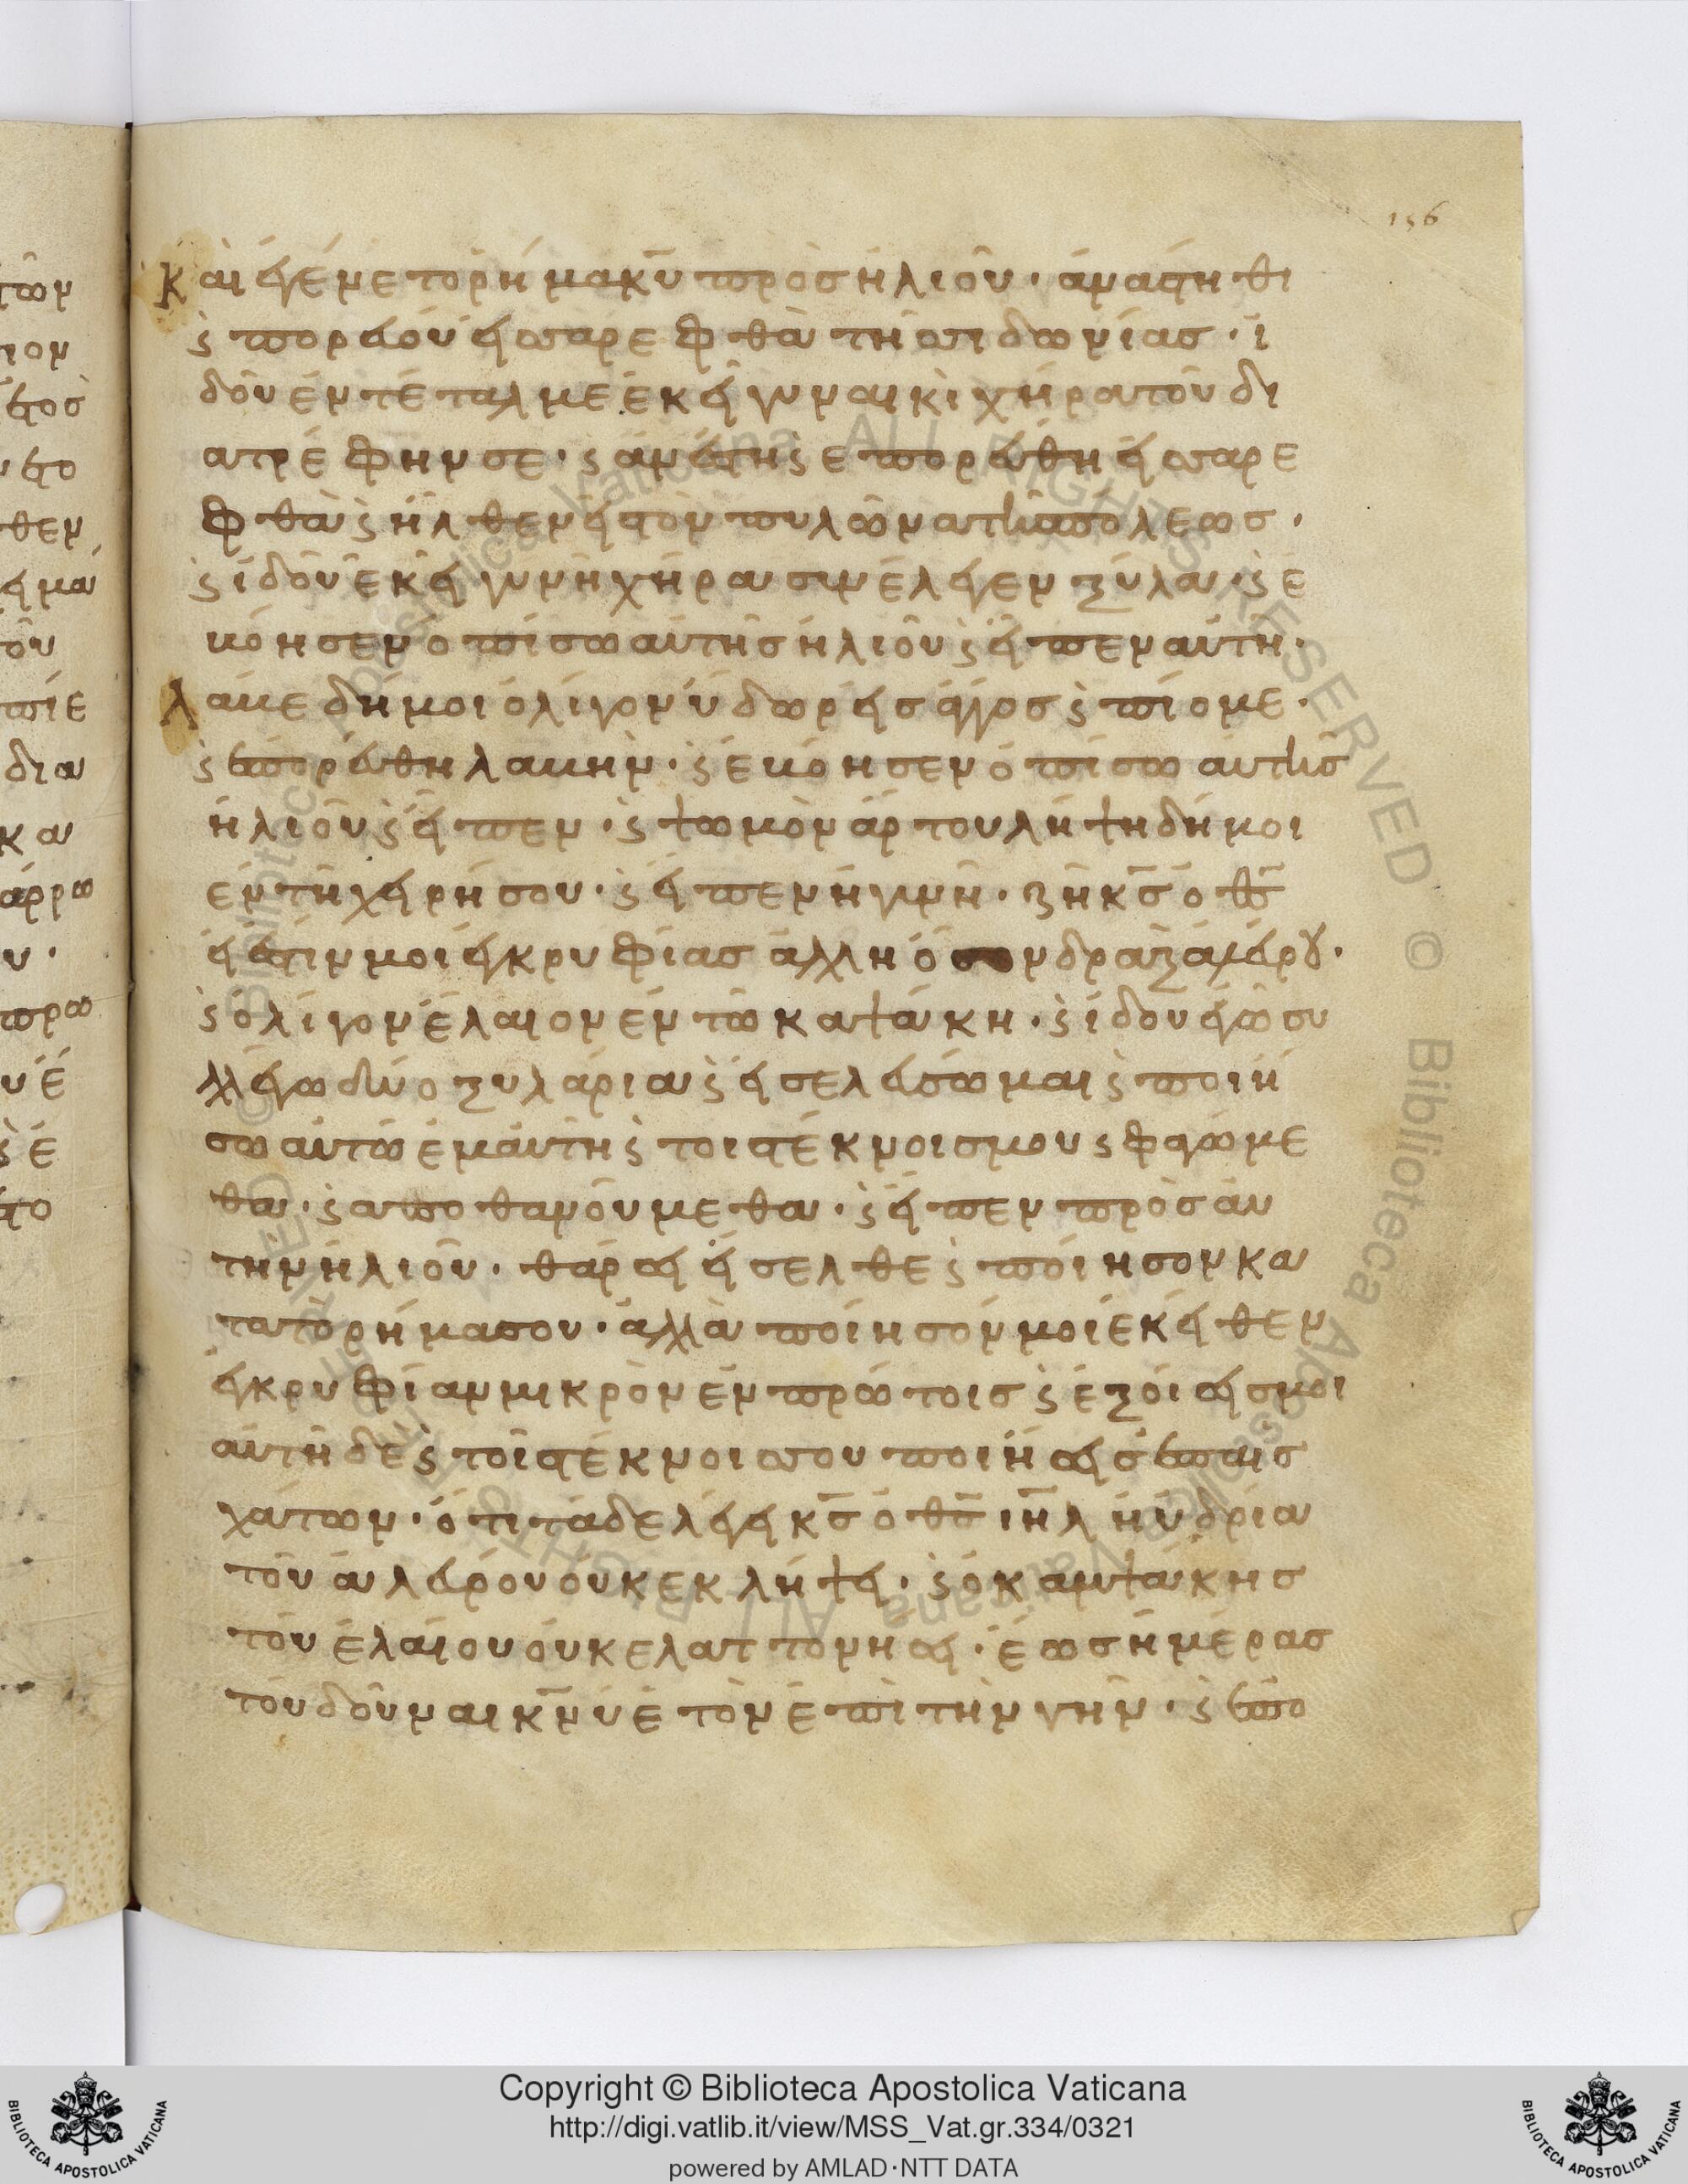 156
Καὶ ἐγένετο ρῆμα κυ πρὸς ἠλιοῦ · ἀνάστηθι
ϛ πορεύου εἰς σάρεφθα τῆς σιδωνίας · ἰ
δοῦ ἐντέταλμε ἐκεῖ γυναικὶ χήρα τοῦ δι
ατρέφην σε · ϛ ἀνέστη ϛ ἐπορεύθη εἰς σαρε
φθὰ ϛ ἦλθεν εἰς τὸν πυλῶνα τῆς πόλεως ·
ϛ ἰδοῦ ἐκεῖ γυνὴ χήρα συνέλεγεν ξύλα · ϛ ἐ
βόησεν ὀπίσω αὐτῆς ἠλιοῦ ϛ εἶπεν αὐτῆ ·
λάβε δή μοι ὀλίγον ὕδωρ εἰς ἄγγος ϛ πίομε ·
ϛ ἐπορεύθη λαβῆν · ϛ ἐβόησεν ὀπίσω αυτῆς
ἠλιοῦ ϛ εἶπεν · ϛ ψωμὸν ἄρτου λήψη δή μοι
ἐν τῆ χειρή σου · ϛ εἶπεν ἡ γυνῆ · ζῆ κς ὁ θς
εἰ ἔστιν μοι ἐγκρυφίας ἀλλ ἢ ὅσον δραξ ἀλεύρου ·
ϛ ὀλίγον ἔλαιον ἐν τῶ καψάκη · ϛ ἰδοῦ ἐγὼ συ
λλέγω δύο ξυλάρια ϛ εἰσελεύσωμαι ϛ ποιή
σω αὐτῶ ἐμαυτῆ ϛ τοις τέκνοις μου ϛ φαγώμε
θα · ϛ αποθανούμεθα · ϛ εἶπεν πρὸς αὐ
τὴν ἠλιοῦ · θάρσει εἴσελθε ϛ ποίησον κα
τα τὸ ρῆμα σου · ἀλλὰ ποίησόν μοι ἐκεῖθεν
ἐγκρυφίαν μικρὸν ἐν πρώτοις ϛ ἐξοίσεις μοι
αὐτῆ δε ϛ τοῖς τέκνοις σου ποιήσεις ἐπαισ
χάτων · ὅτι τάδε λέγει κς ὁ θς ιηλ ἡ ὑδρία
τοῦ ἀλεύρου οὐκ εκλήψει · ϛ ὁ καμψάκης
τοῦ ἐλαίου οὐκ ελαττονήσει · ἕως ἡμέρας
τοῦ δοῦναι κν ὑετὸν ἐπὶ τὴν γῆν · ϛ ἐπο
Copyright © Biblioteca Apostolica Vaticana
http://digi.vatlib.it/view/MSS_Vat.gr.334/0321
powered by AMLAD·NTT DATA